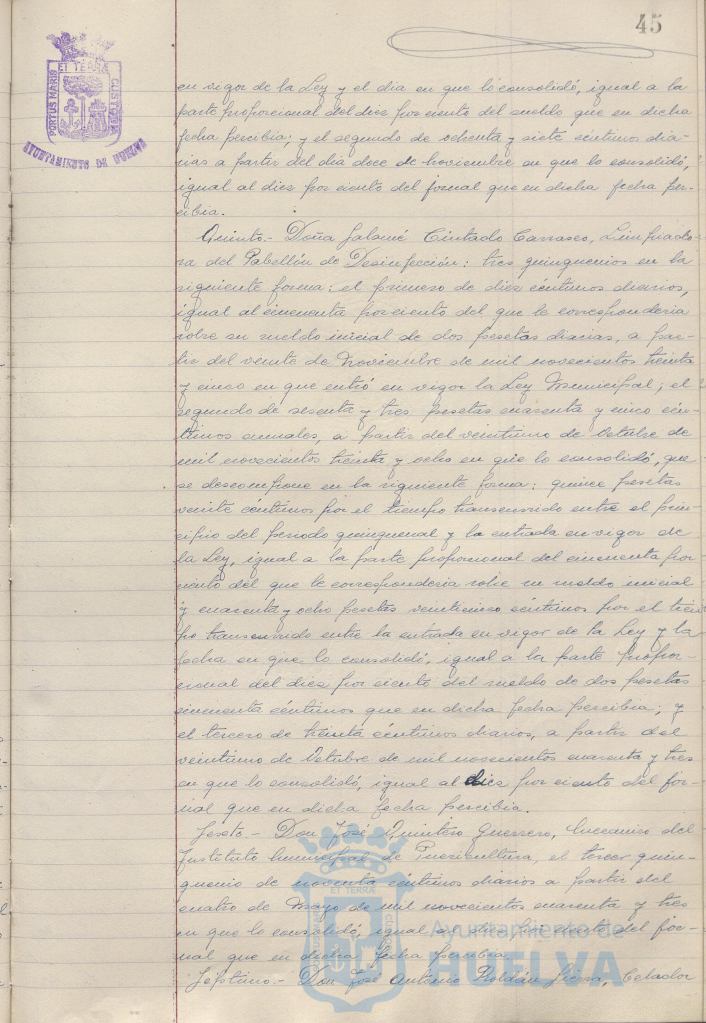 45
ET TERRA
PORTUS MARIS
CUSTODIA
AYUNTAMIENTO DE HUELVA
en vigor de la Ley y el dia en que lo consolidó, igual a la
parte proporcional del diez por ciento del sueldo que en dicha
fecha percibia; y el segundo de ochenta y siete céntimos dia-
rias a partir del dia doce de Noviembre en que lo consolidó,
igual al diez por ciento del jornal que en dicha fecha per-
cibia.
Quinto.- Doña Salomé Cintado Carrasco, Limpiado-
ra del Pabellón de Desinfección: tres quinquenios en la
siguiente forma: el primero de diez céntimos diarios,
igual al cincuenta por ciento del que le correspondería
sobre su sueldo inicial de dos pesetas diarias, a par-
tir del veinte de Noviembre de mil novecientos treinta
y cinco en que entró en vigor la Ley Municipal; el
segundo de sesenta y tres pesetas cuarenta y cinco cén-
timos anuales, a partir del veintiuno de Octubre de
mil novecientos treinta y ocho en que lo consolidó, que
se descompone en la siguiente forma: quince pesetas
veinte céntimos por el tiempo transcurrido entre el prin-
cipio del periodo quinquenal y la entrada en vigor de
la Ley, igual a la parte proporcional del cincuenta por
ciento del que le correspondería sobre su sueldo inicial
y cuarenta y ocho pesetas veinticinco céntimos por el tiem
po transcurrido entre la entrada en vigor de la Ley y la
fecha en que lo consolidó, igual a la parte propor-
cional del diez por ciento del sueldo de dos pesetas
cincuenta céntimos que en dicha fecha percibia; y
el tercero de treinta céntimos diarios, a partir del
veintiuno de Octubre de mil novecientos cuarenta y tres
en que lo consolidó, igual al diez por ciento del jor-
nal que en dicha fecha percibia.
Sexto.- Don José Quintero Guerrero, Mecanico del
Instituto Municipal de Puericultura, el tercer quin-
quenio de noventa céntimos diarios a partir del
cuatro de Mayo de mil novecientos cuarenta y tres
en que lo consolidó, igual al diez por ciento del jor-
nal que en dicha fecha percibia.
Séptimo.- Don José Antonio Roldán, Celador
ET TERRA
Ayuntamiento de
HUELVA